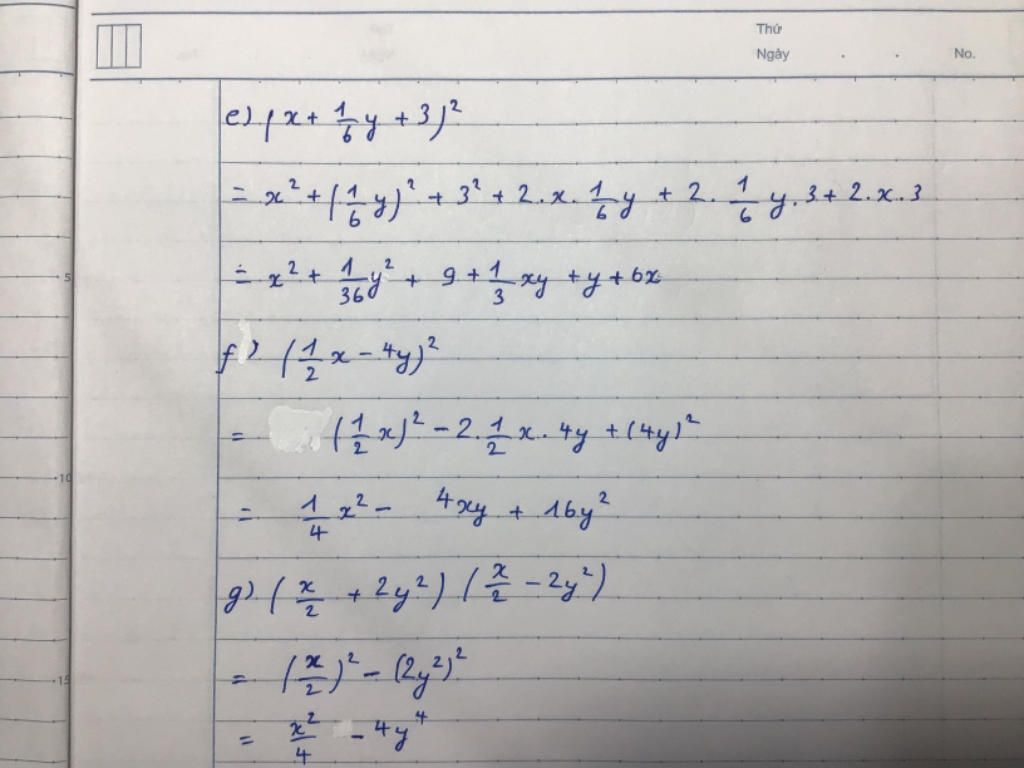 Thứ
Ngày . . No.
e) (x + 1/6 y + 3)²
= x² + (1/6 y)² + 3² + 2.x.1/6 y + 2.1/6 y.3 + 2.x.3
5
= x² + 1/36 y² + 9 + 1/3 xy + y + 6x
f) (1/2 x - 4y)²
= (1/2 x)² - 2.1/2 x.4y + (4y)²
10
= 1/4 x² - 4xy + 16y²
g) (x/2 + 2y²) (x/2 - 2y²)
= (x/2)² - (2y²)²
15
= x²/4 - 4y⁴